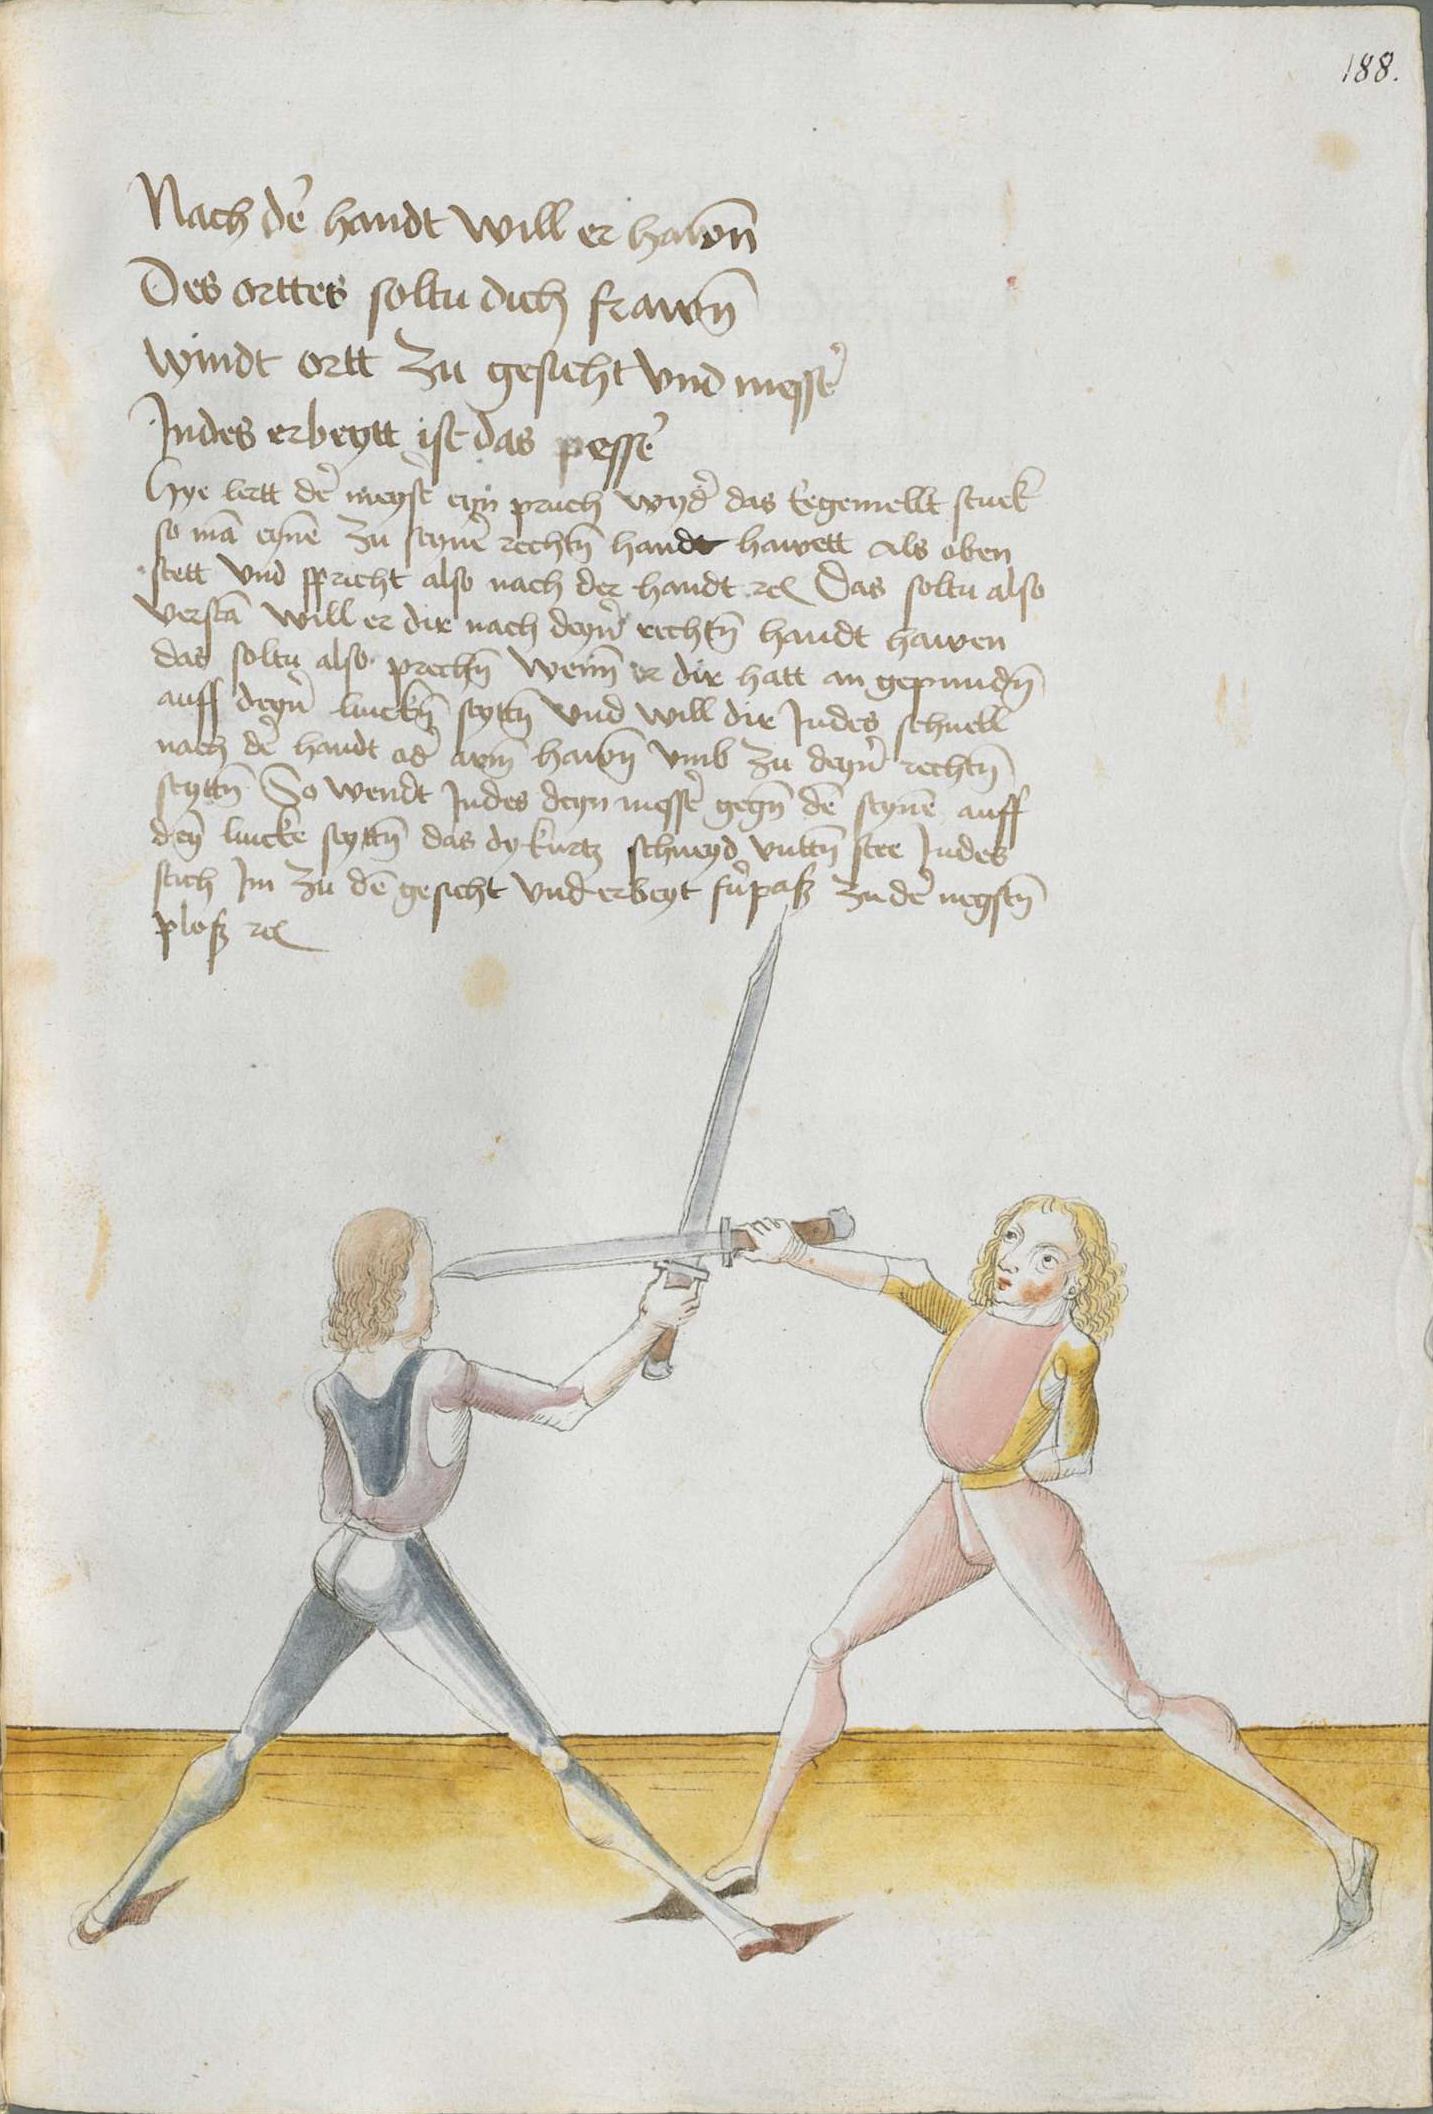 188.
Nach deᷣ handt will er hawñ
Des orttes soltu dich frawñ
Windt ortt zu gesicht vnd messeᷣ
Indes erbeytt ist das pesseᷣ
Hye lertt deᷣ meysteᷣ eyn pruch wydeᷣ das gegemellt stuck
so mā eynē zu seyneᷣ rechtn̄ handt hawett als oben
stett vnd spricht also nach der handt ⁊c̄ Das soltu also
verstā will er dir nach deyneᷣ rechtn̄ handt hawen
das soltu also prechn̄ wenn̄ er dir hatt an gepundn̄
auff deyneᷣ linckn̄ seyttn̄ vnd will dir Indes schnell
nach deᷣ handt odeᷣ arm̄ hawn̄ vmb zu deyneᷣ rechtn̄
seyttn̄ So wendt Indes deyn messeᷣ gegn̄ dē seynē auff
deyn̄ lincke seyttn̄ das dy kurtz schneyd vnttn̄ stee Indes
stich Im zu dē gesicht vnd erbeyt fuᷣpaß zu deᷣ negstn̄
ploß ⁊c̄